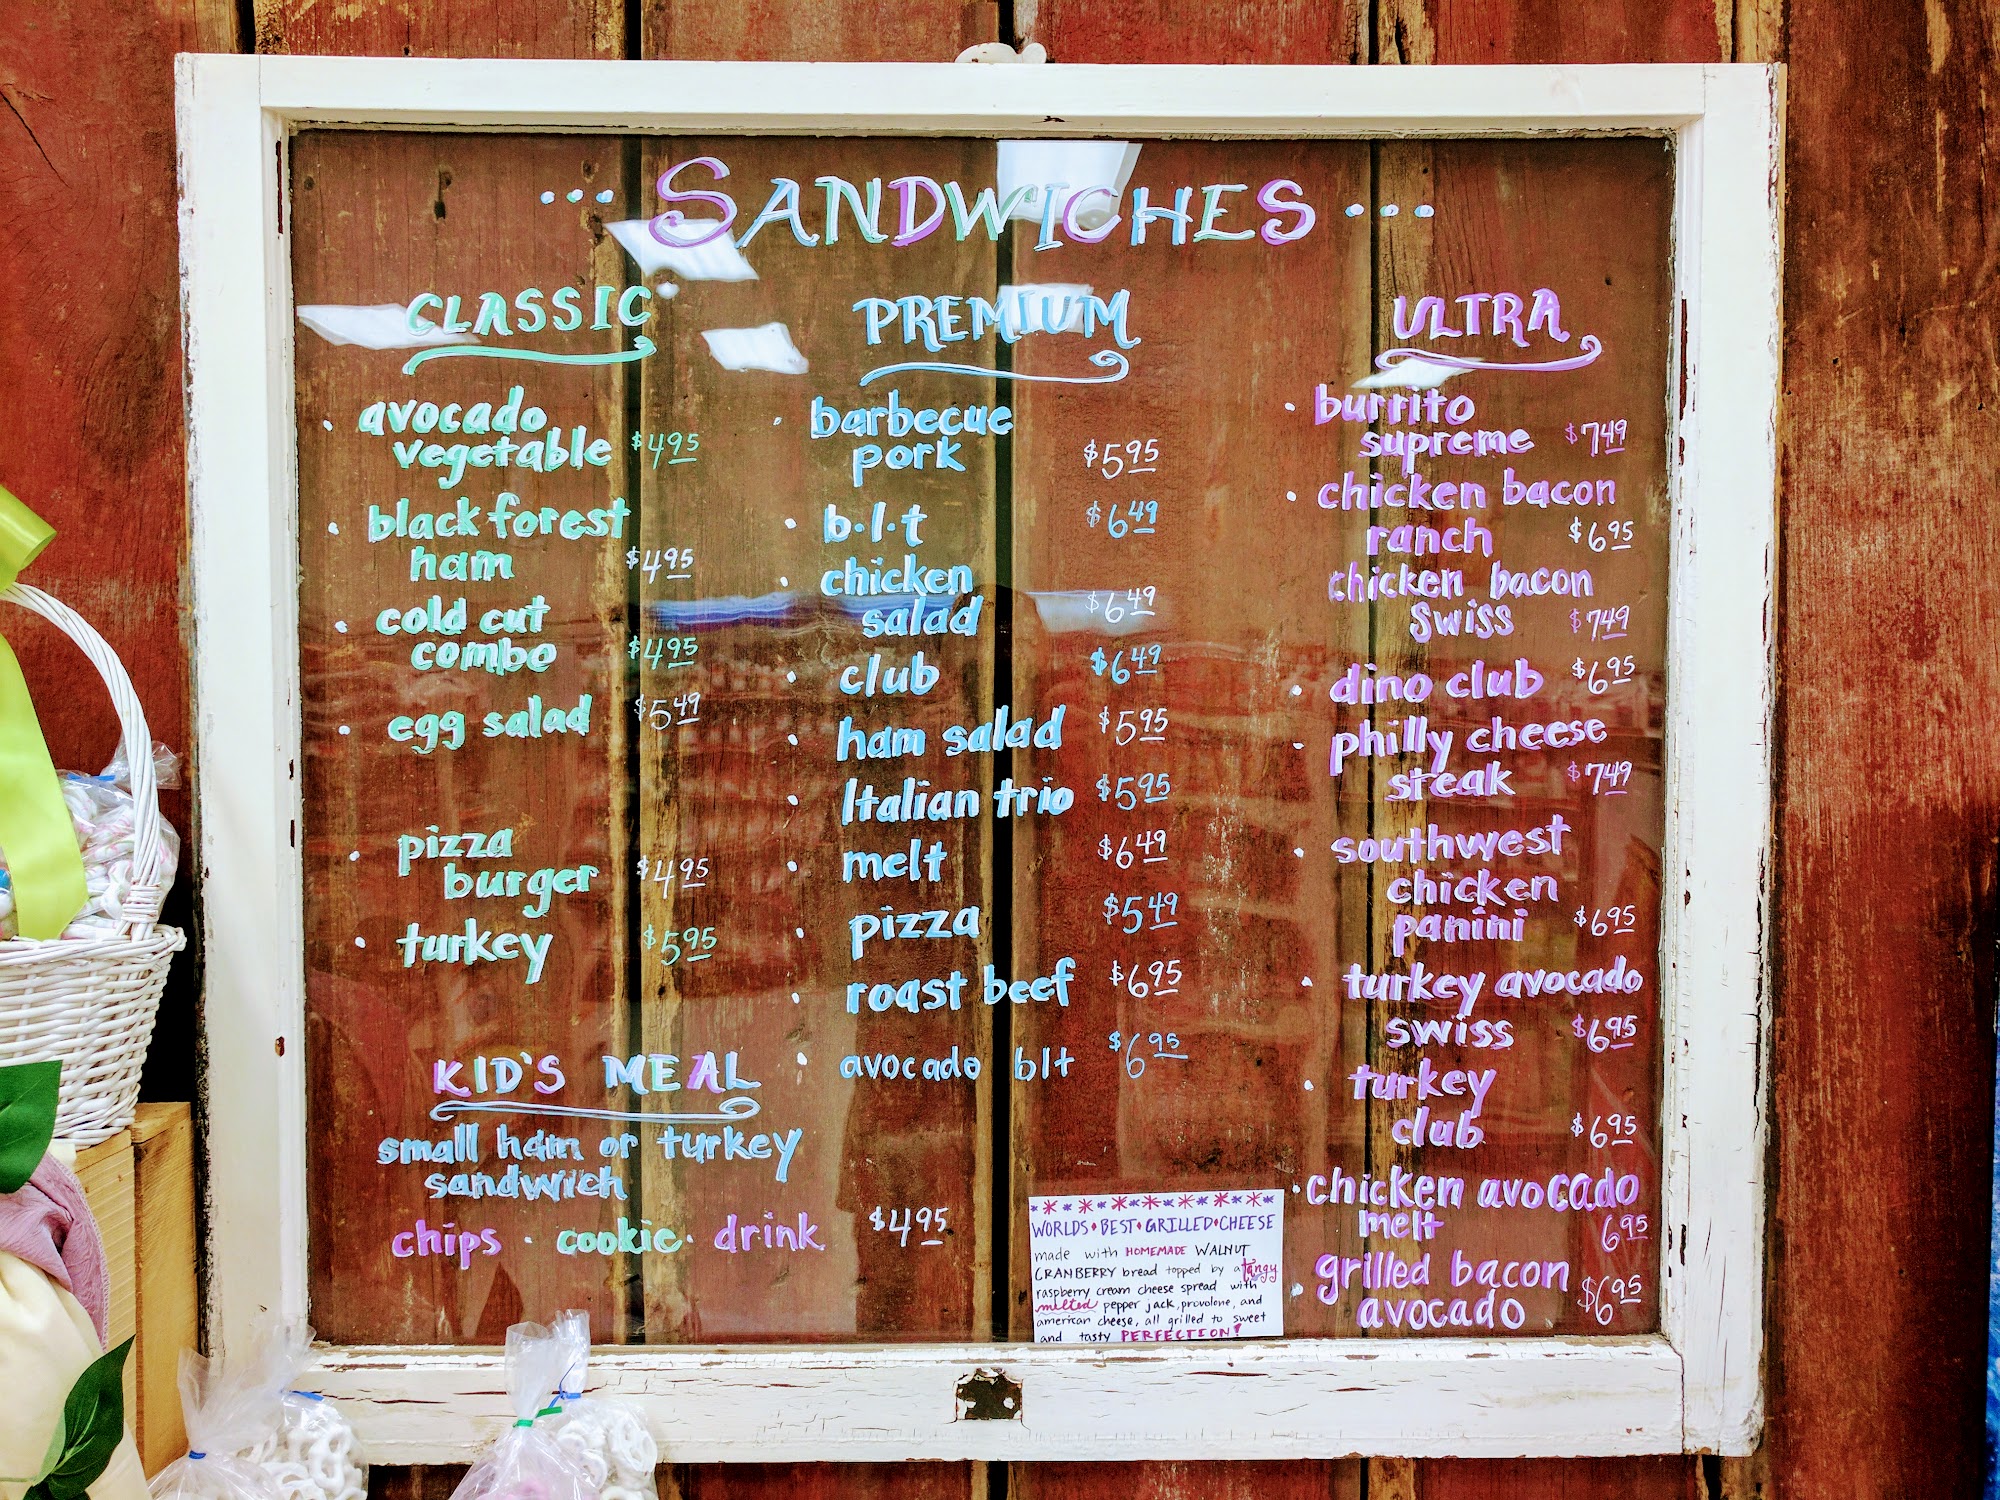 ... SANDWICHES ...
CLASSIC
• avocado
vegetable $4.95
• black forest
ham $4.95
• cold cut
combo $4.95
• egg salad $5.49
• pizza
burger $4.95
• turkey $5.95
KID'S MEAL
small ham or turkey
sandwich
chips · cookie · drink $4.95
PREMIUM
• barbecue
pork $5.95
• b.l.t $6.49
• chicken
salad $6.49
• club $6.49
• ham salad $5.95
• Italian trio $5.95
• melt $6.49
• pizza $5.49
• roast beef $6.95
• avocado blt $6.95
WORLDS • BEST • GRILLED • CHEESE
made with HOMEMADE WALNUT
CRANBERRY bread topped by a tangy
raspberry cream cheese spread with
melted pepper jack, provolone, and
american cheese, all grilled to sweet
and tasty PERFECTION!
ULTRA
• burrito
supreme $7.49
• chicken bacon
ranch $6.95
chicken bacon
swiss $7.49
• dino club $6.95
• philly cheese
steak $7.49
• southwest
chicken
panini $6.95
• turkey avocado
swiss $6.95
• turkey
club $6.95
• chicken avocado
melt 6.95
• grilled bacon
avocado $6.95